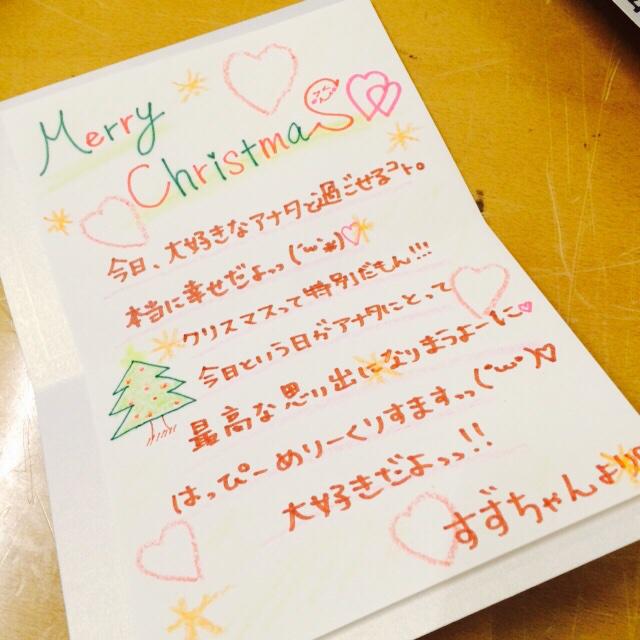 Merry
Christmas
今日、大好きなアナタと過ごせるコト。
本当に幸せだよっっ(*´ω`*)♡
クリスマスって特別だもん!!!
今日という日がアナタにとって
最高な思い出になりまうよーに♡
はっぴーめりーくりすますっっ(*´ω`*)♡
大好きだよっっ!!
すずちゃんより